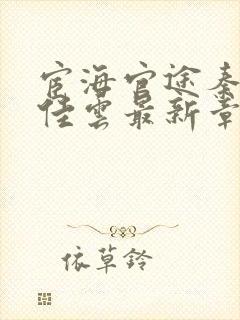 宦海官途秦
佳云最新章
依草铃